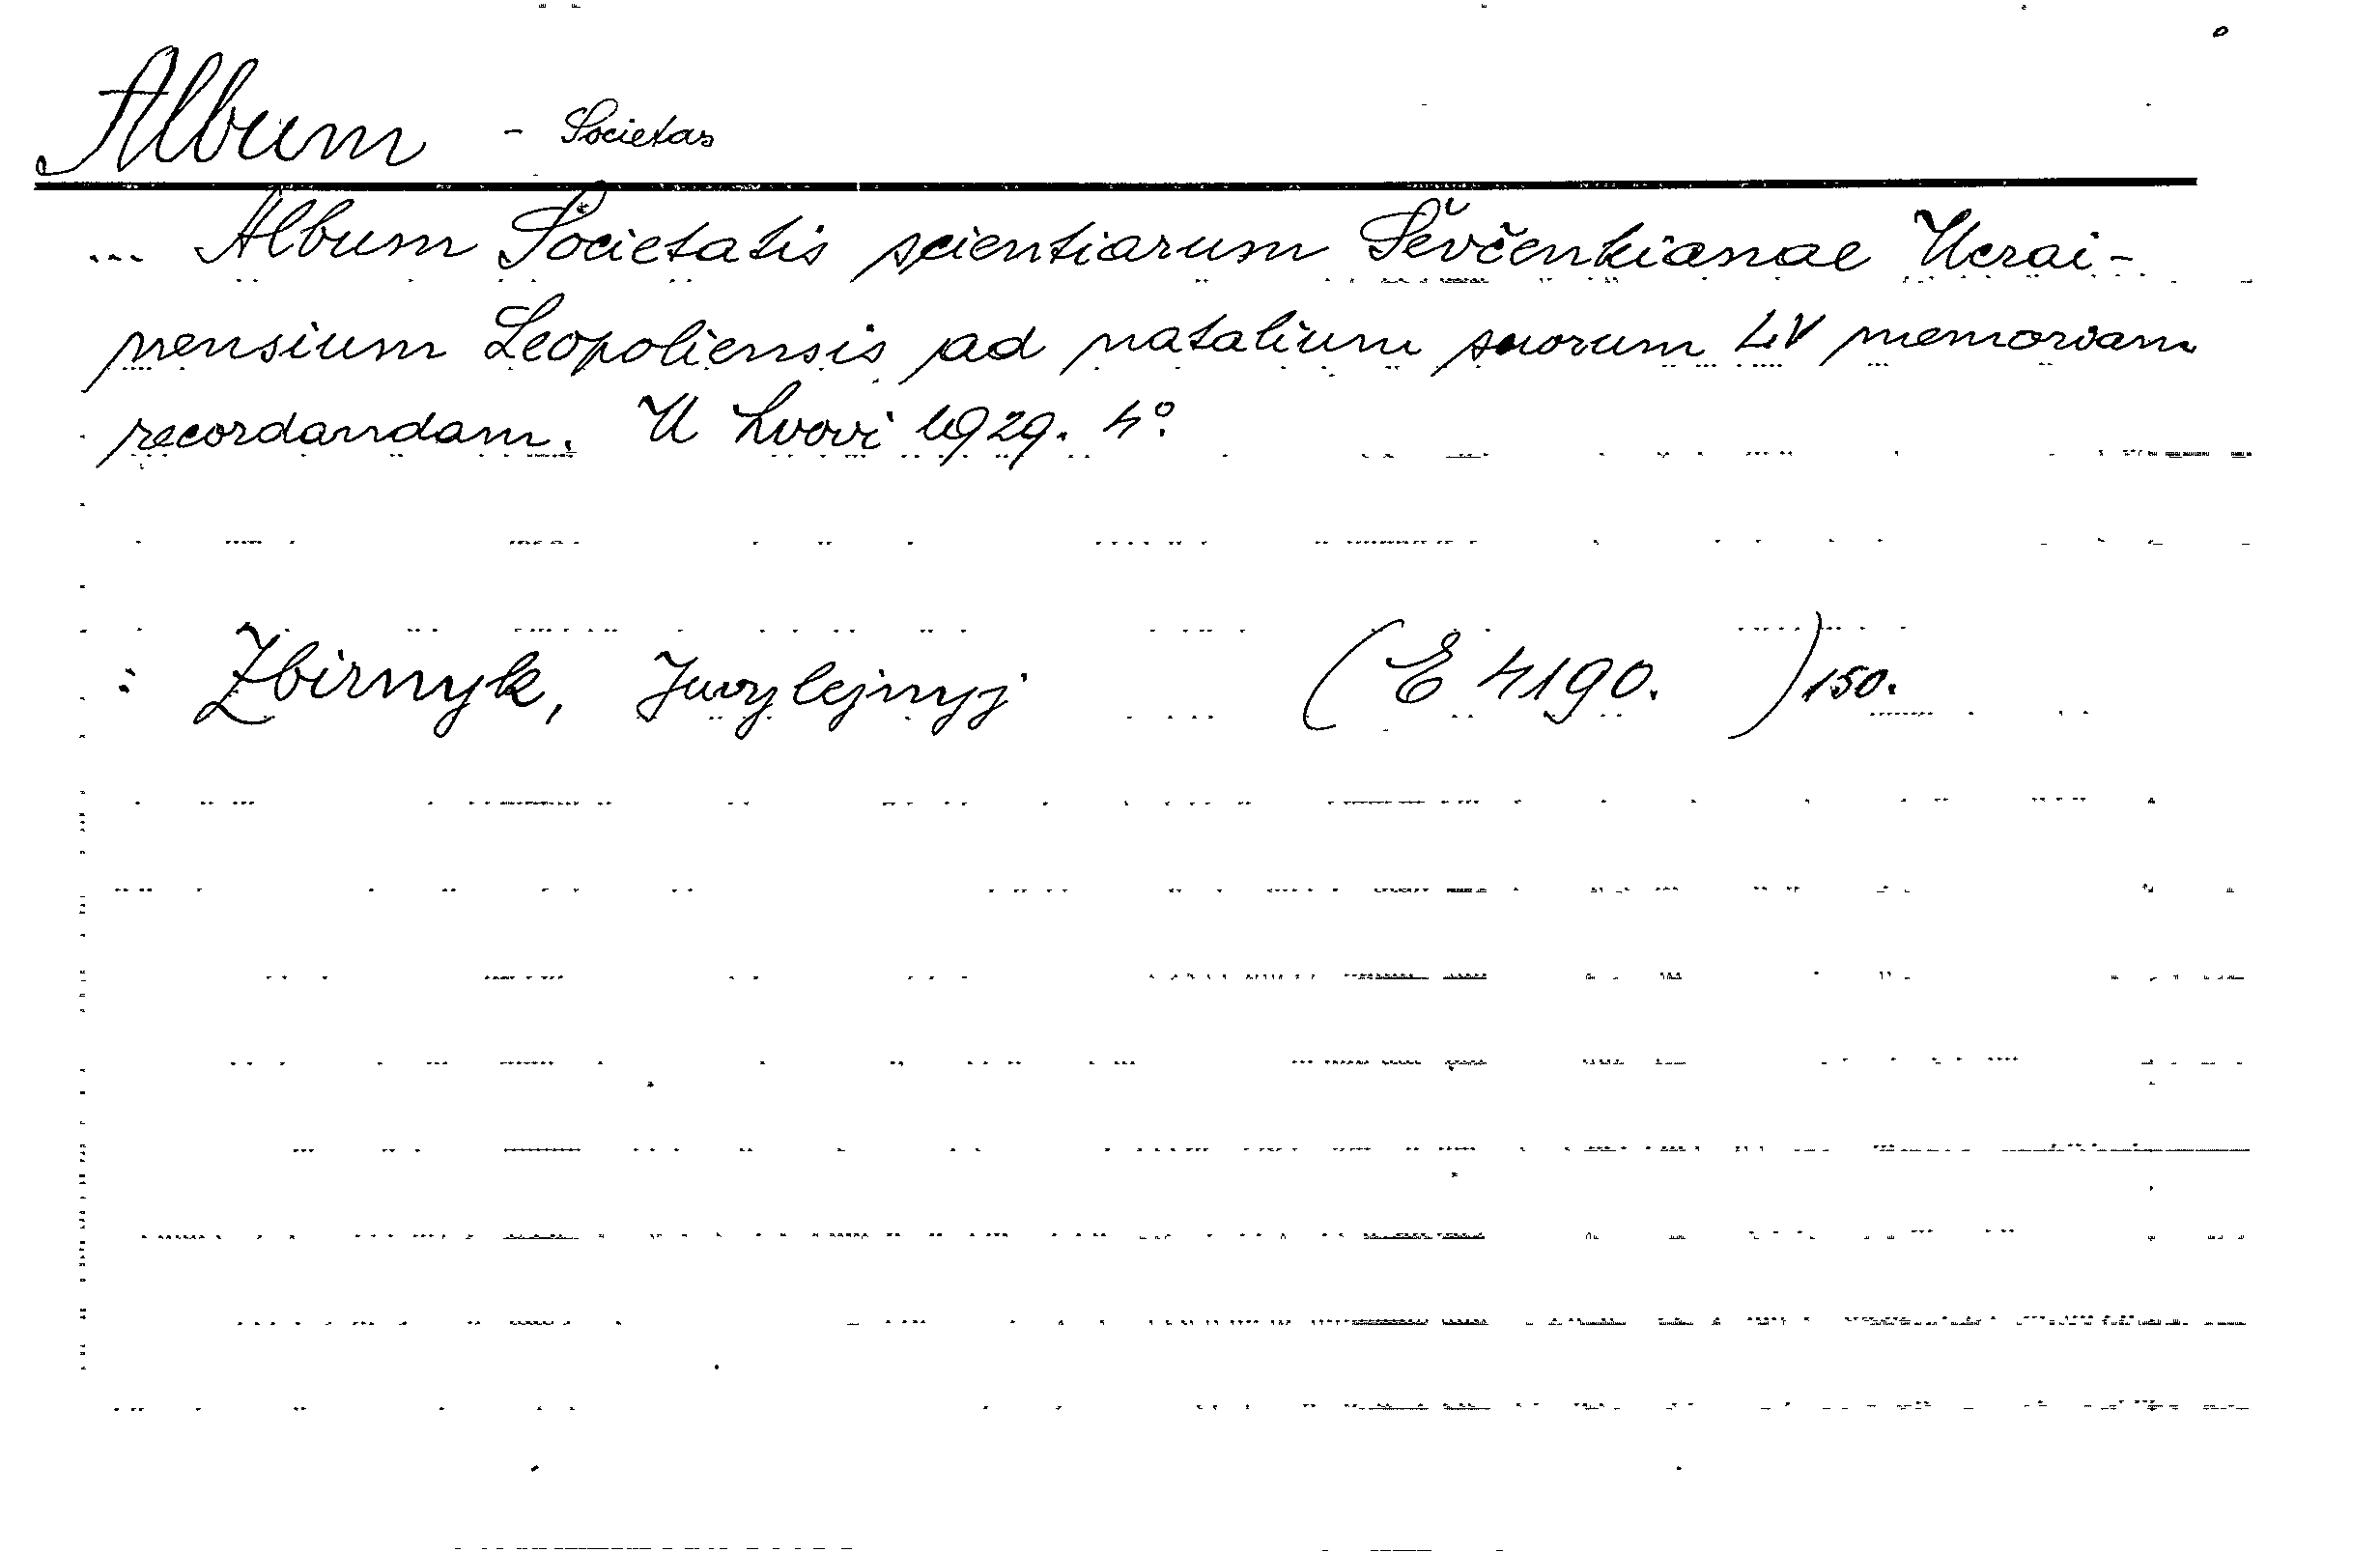 Album - Societas
... Album Societatis scientiarum Ševčenkianae Ucrai-
nensium Leopoliensis ad natalium suorum LV memoriam
recordandam. U Lvovi 1929. 4°.
: Zbirnyk, Juvylejnyj (E 4190. ) 150.